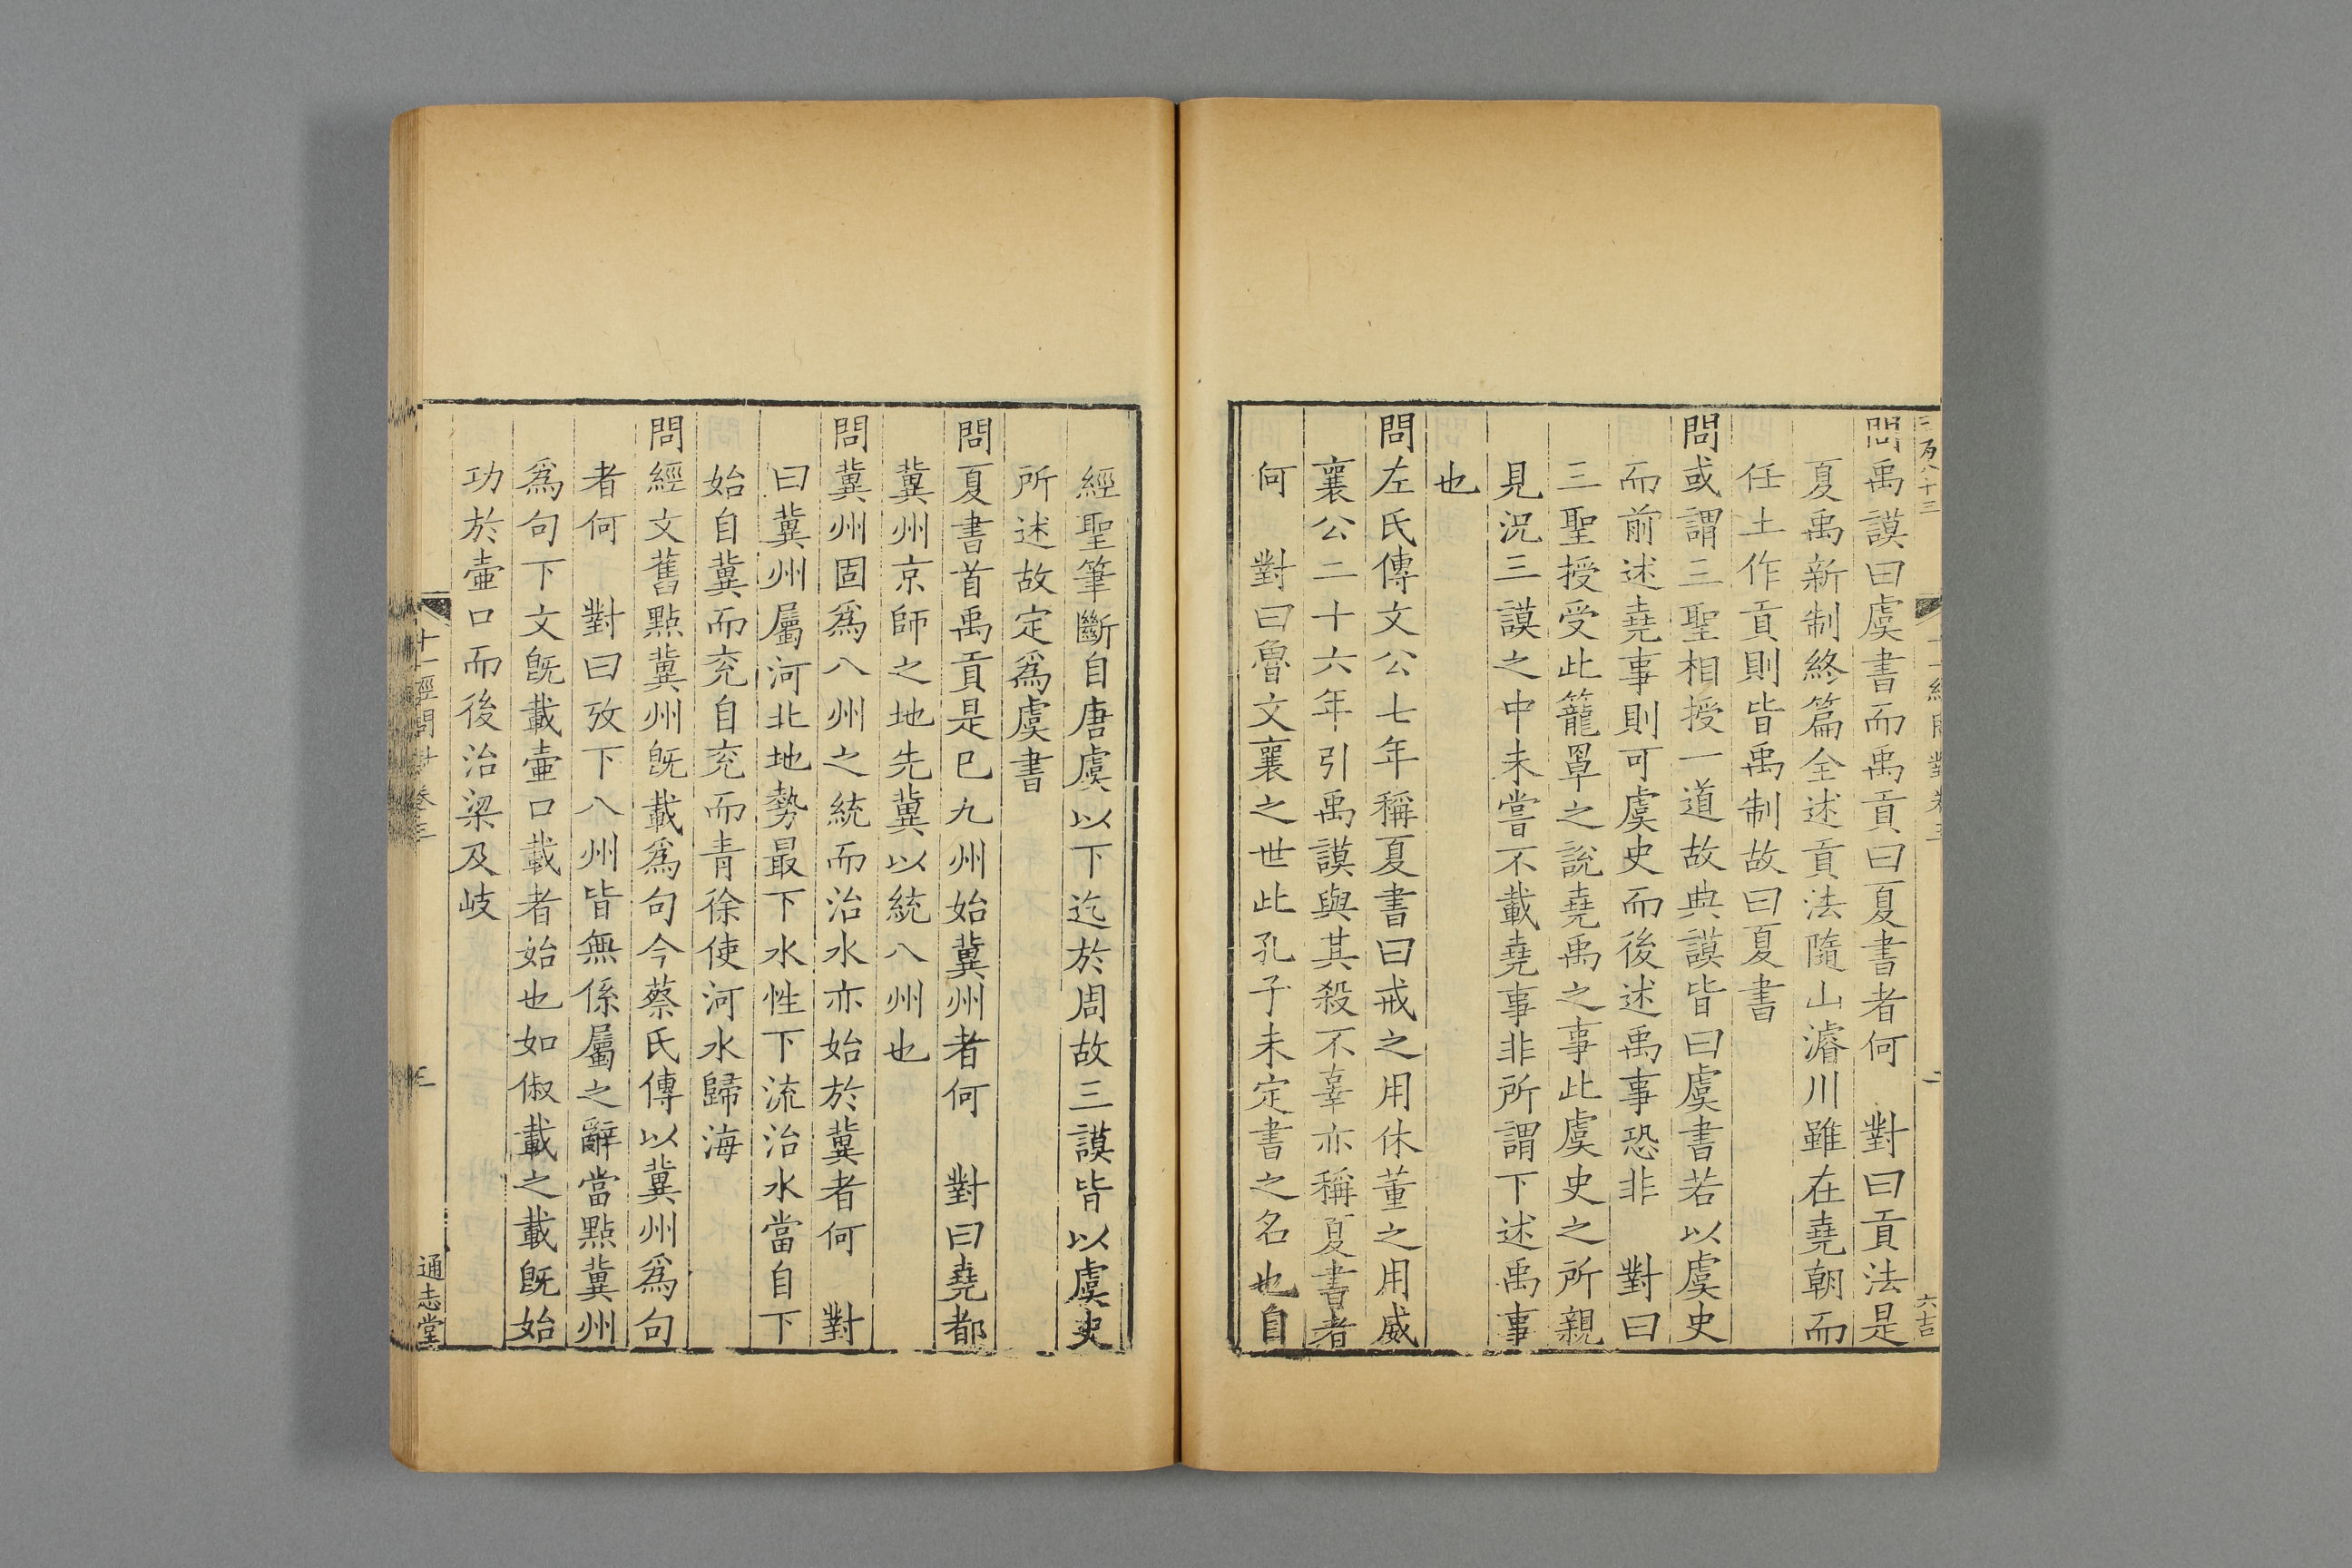 三百八十三
十一經問對卷三
二
六吉
問禹謨曰虞書而禹貢曰夏書者何　對曰貢法是
夏禹新制終篇全述貢法隨山濬川雖在堯朝而
任土作貢則皆禹制故曰夏書
問或謂三聖相授一道故典謨皆曰虞書若以虞史
而前述堯事則可虞史而後述禹事恐非　對曰
三聖授受此籠罩之說堯禹之事此虞史之所親
見況三謨之中未嘗不載堯事非所謂下述禹事
也
問左氏傳文公七年稱夏書曰戒之用休董之用威
襄公二十六年引禹謨與其殺不辜亦稱夏書者
何　對曰魯文襄之世此孔子未定書之名也自
經聖筆斷自唐虞以下迄於周故三謨皆以虞史
所述故定爲虞書
問夏書首禹貢是巳九州始冀州者何　對曰堯都
冀州京師之地先冀以統八州也
問冀州固爲八州之統而治水亦始於冀者何　對
曰冀州屬河北地勢最下水性下流治水當自下
始自冀而兗自兗而青徐使河水歸海
問經文舊點冀州旣載爲句今蔡氏傳以冀州爲句
者何　對曰攷下八州皆無係屬之辭當點冀州
爲句下文旣載壺口載者始也如俶載之載旣始
功於壺口而後治梁及岐
十一經問對卷三
三
通志堂